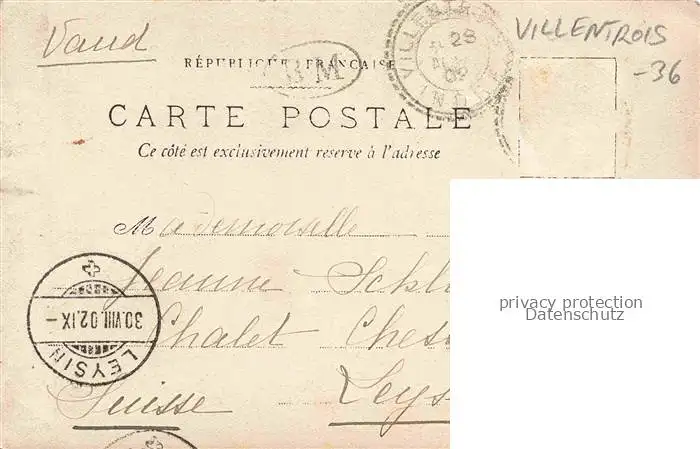 Vaud
VILLENTROIS
-36
RÉPUBLIQUE FRANÇAISE
BM
28
02
INDRE
CARTE POSTALE
Ce côté est exclusivement reservé à l'adresse
Mademoiselle
Jeanne
Chalet
Suisse
30.VIII.02.IX-
LEYSIN
privacy protection
Datenschutz